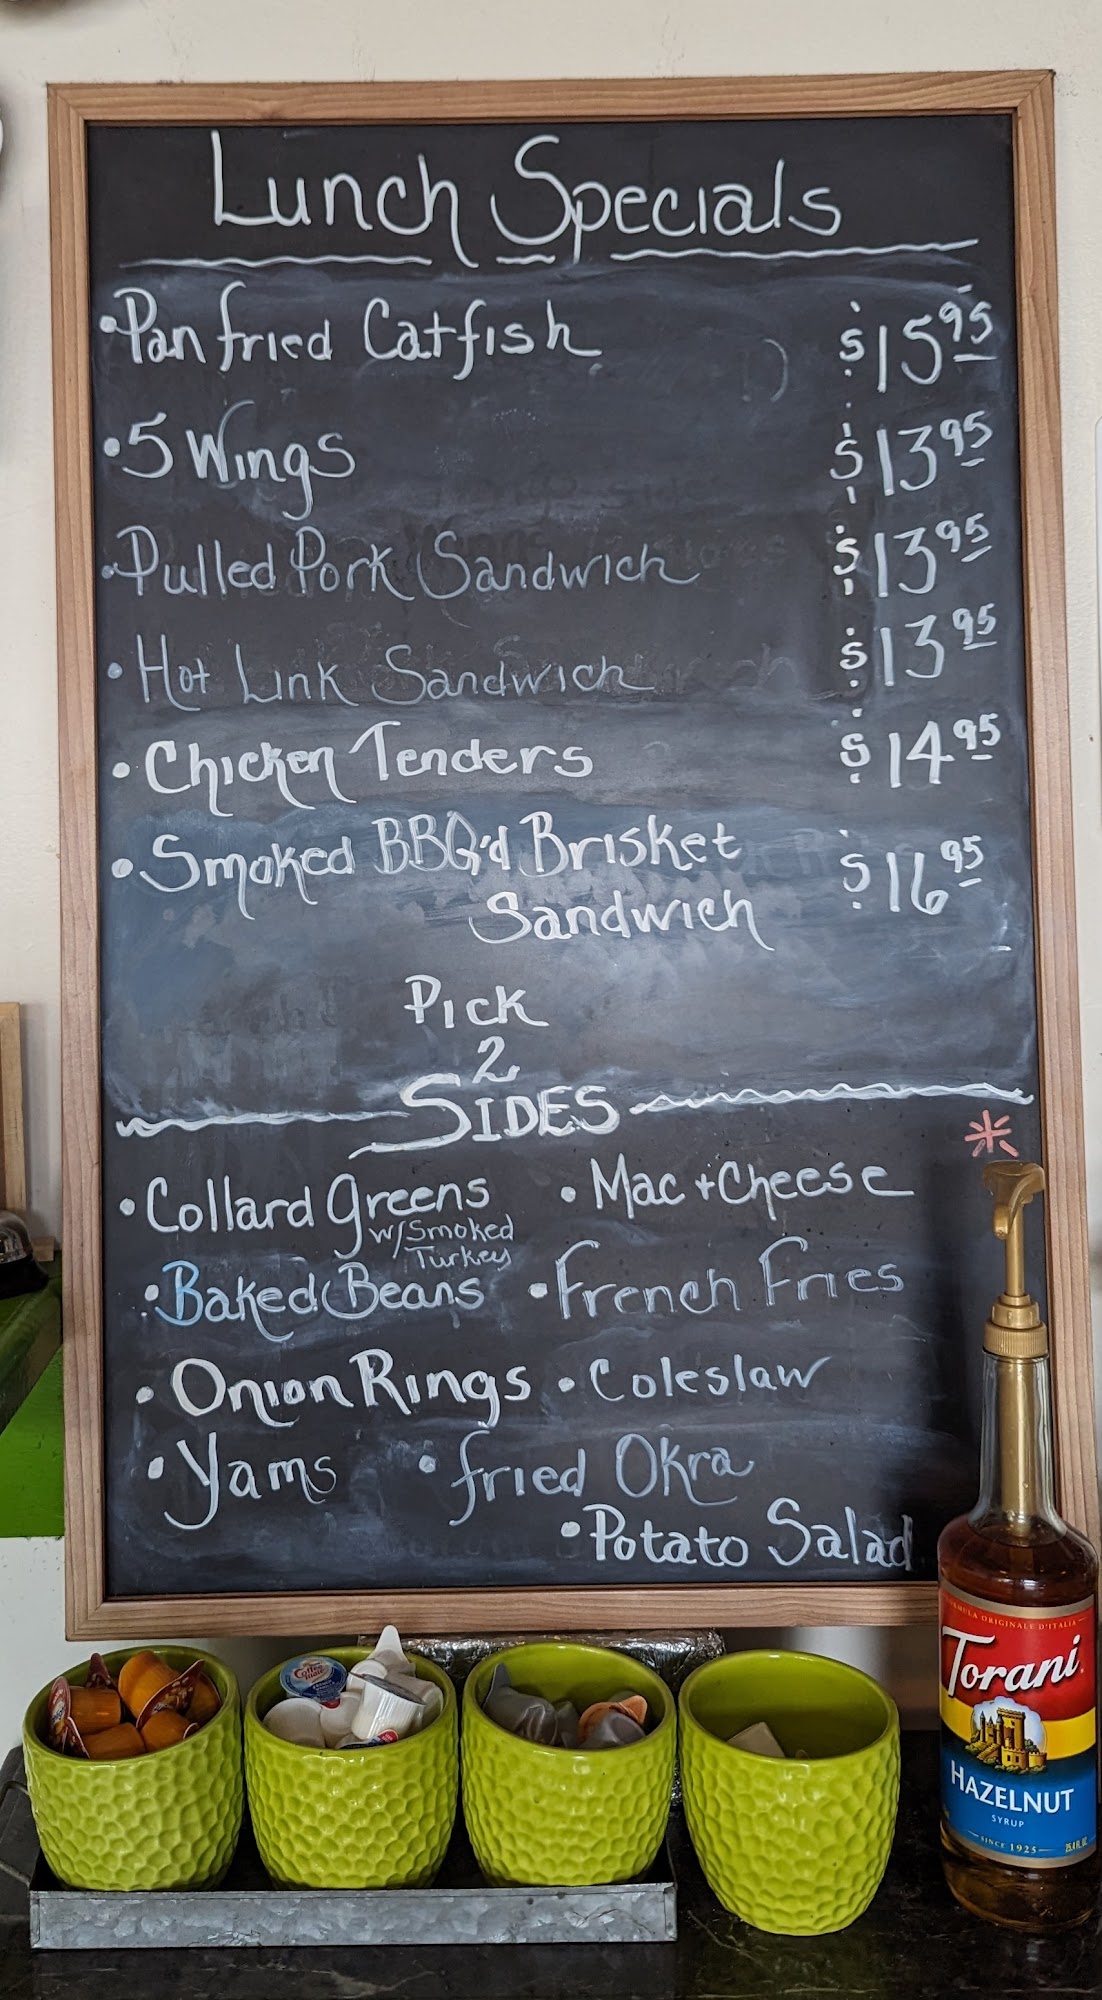 Lunch Specials
• Pan fried Catfish $15.95
• 5 Wings $13.95
• Pulled Pork Sandwich $13.95
• Hot Link Sandwich $13.95
• Chicken Tenders $14.95
• Smoked BBQ'd Brisket $16.95
Sandwich
Pick
2
SIDES
• Collard greens • Mac + Cheese
w/Smoked
Turkey
• Baked Beans • French Fries
• Onion Rings • Coleslaw
• Yams • fried Okra
• Potato Salad
FORMULA ORIGINALE D'ITALIA
Torani
HAZELNUT
SYRUP
SINCE 1925
Coffee mate